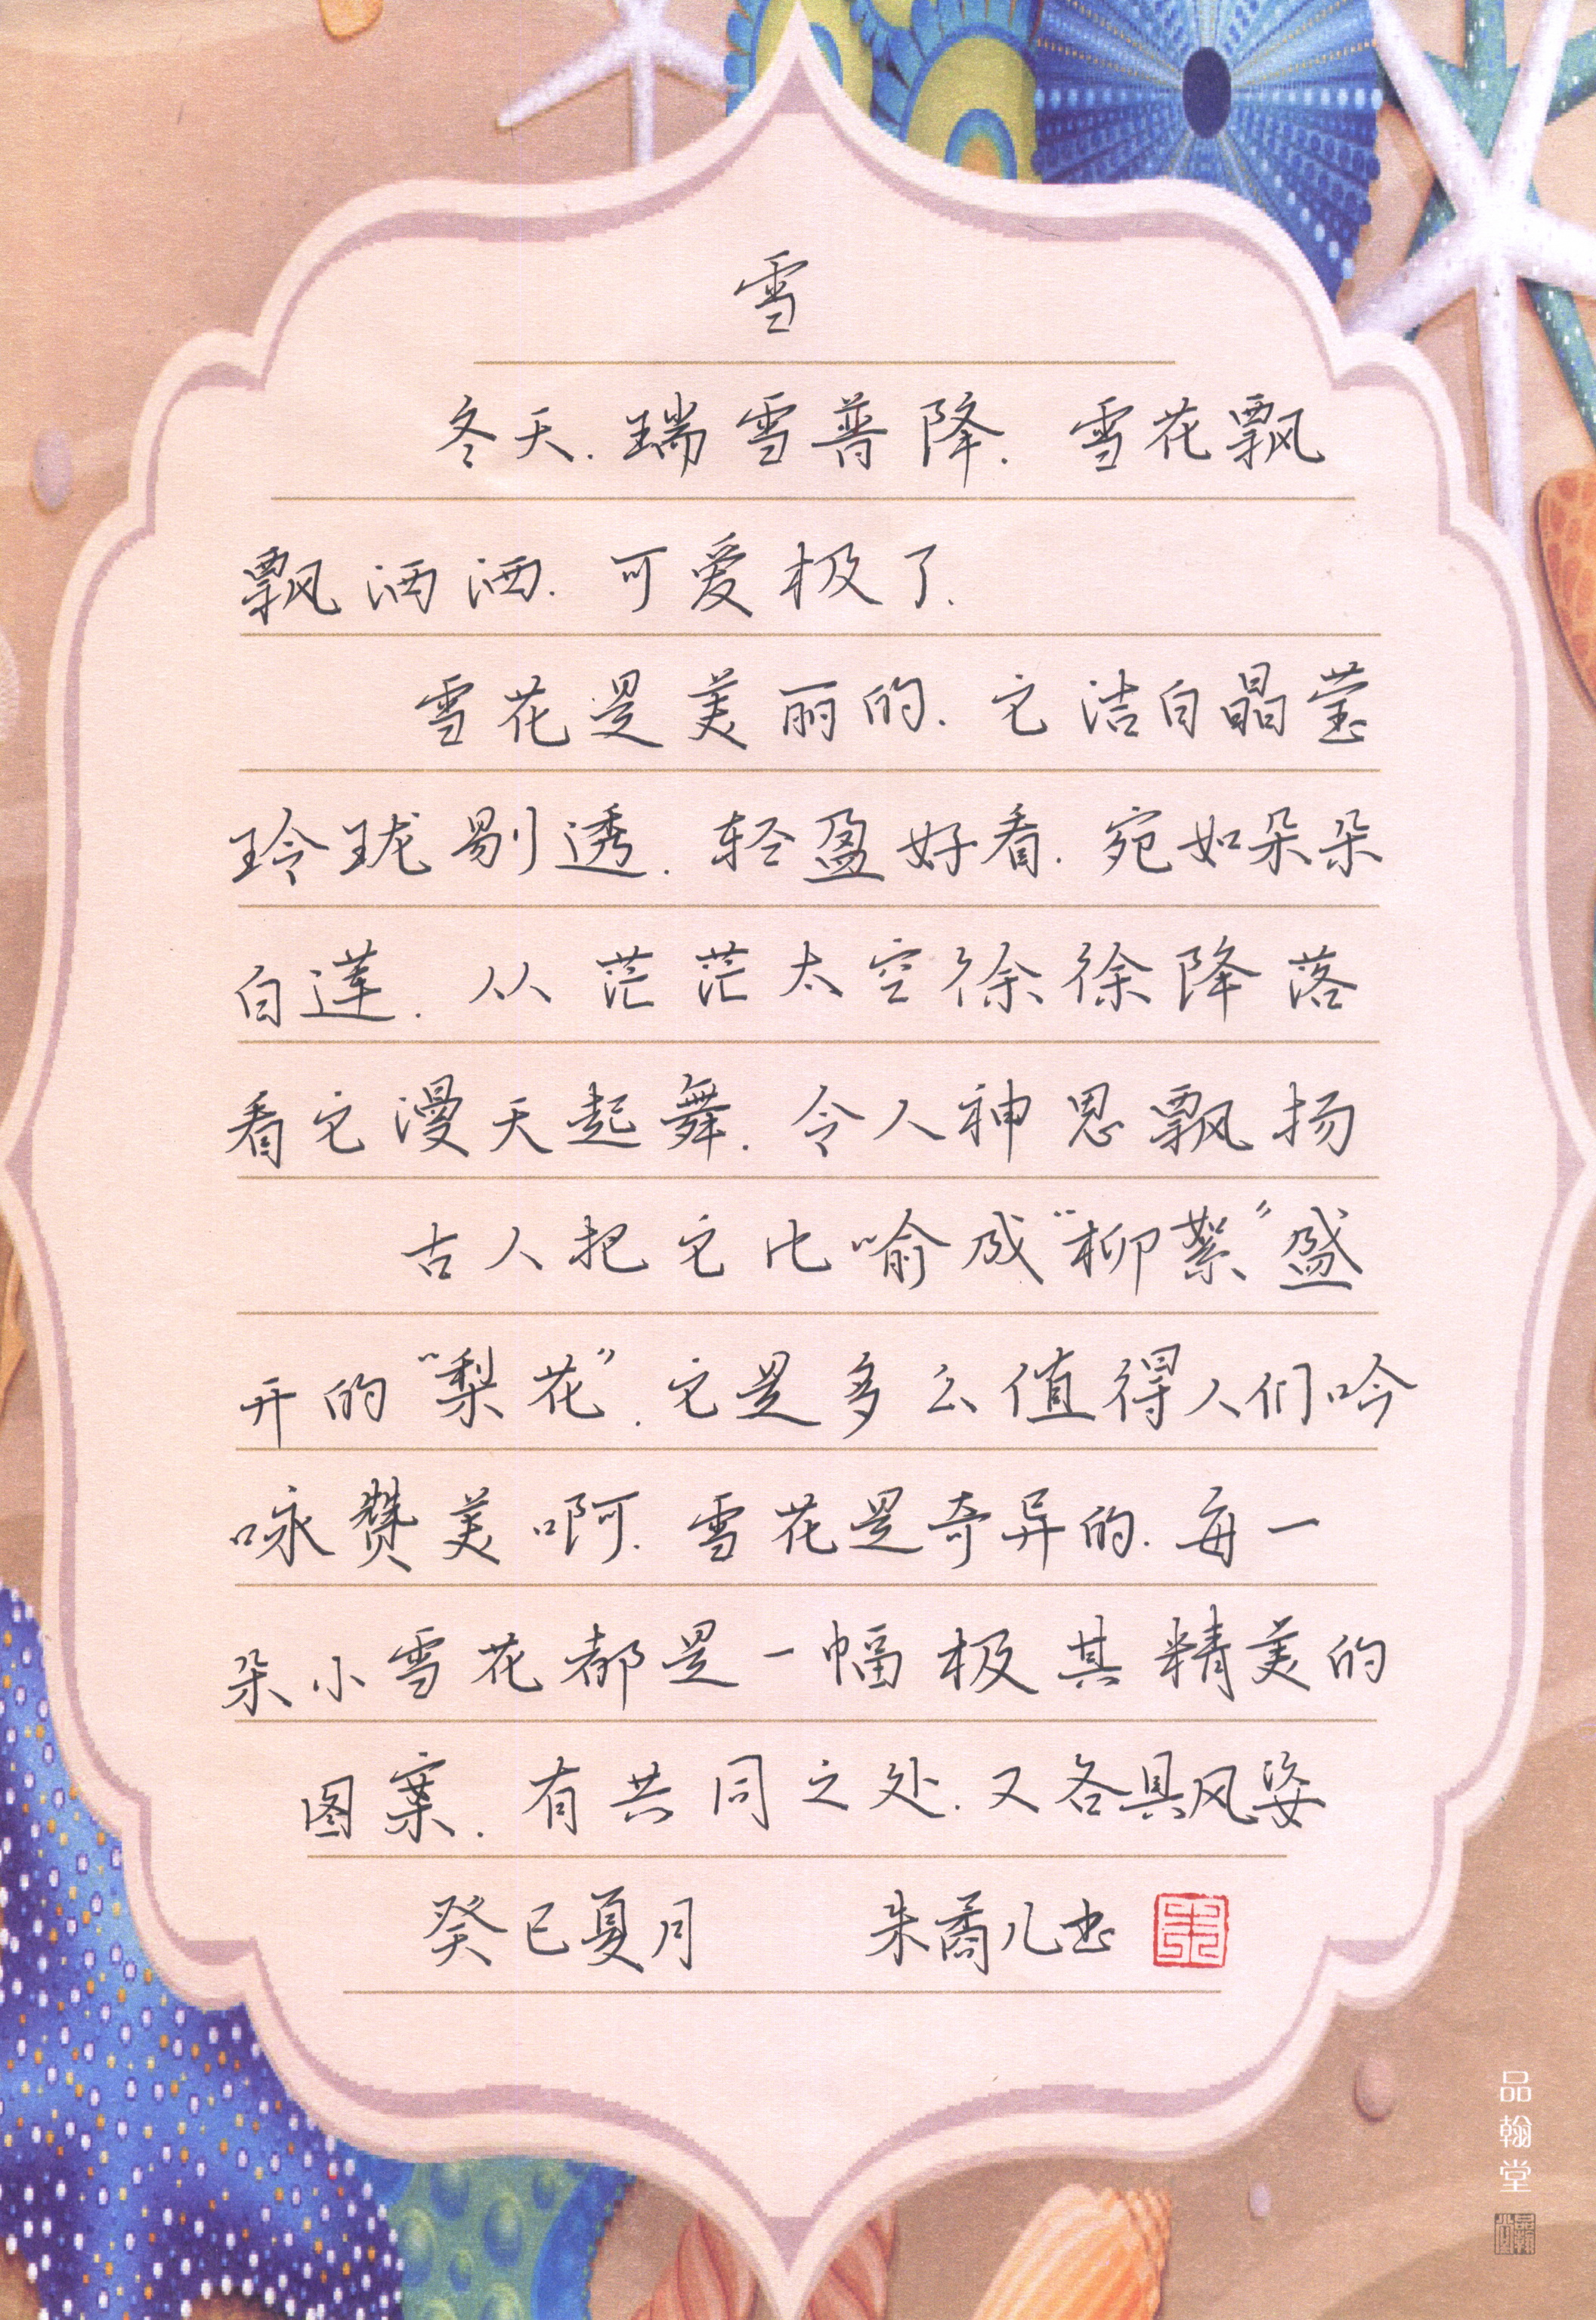 雪
冬天.瑞雪普降.雪花飘
飘洒洒.可爱极了.
雪花是美丽的.它洁白晶莹
玲珑剔透.轻盈好看.宛如朵朵
白莲.从茫茫太空徐徐降落
看它漫天起舞.令人神思飘扬
古人把它比喻成“柳絮”盛
开的“梨花”.它是多么值得人们吟
咏赞美啊.雪花是奇异的.每一
朵小雪花都是一幅极其精美的
图案.有共同之处.又各具风姿
癸巳夏月 朱矞儿书
朱
品翰堂